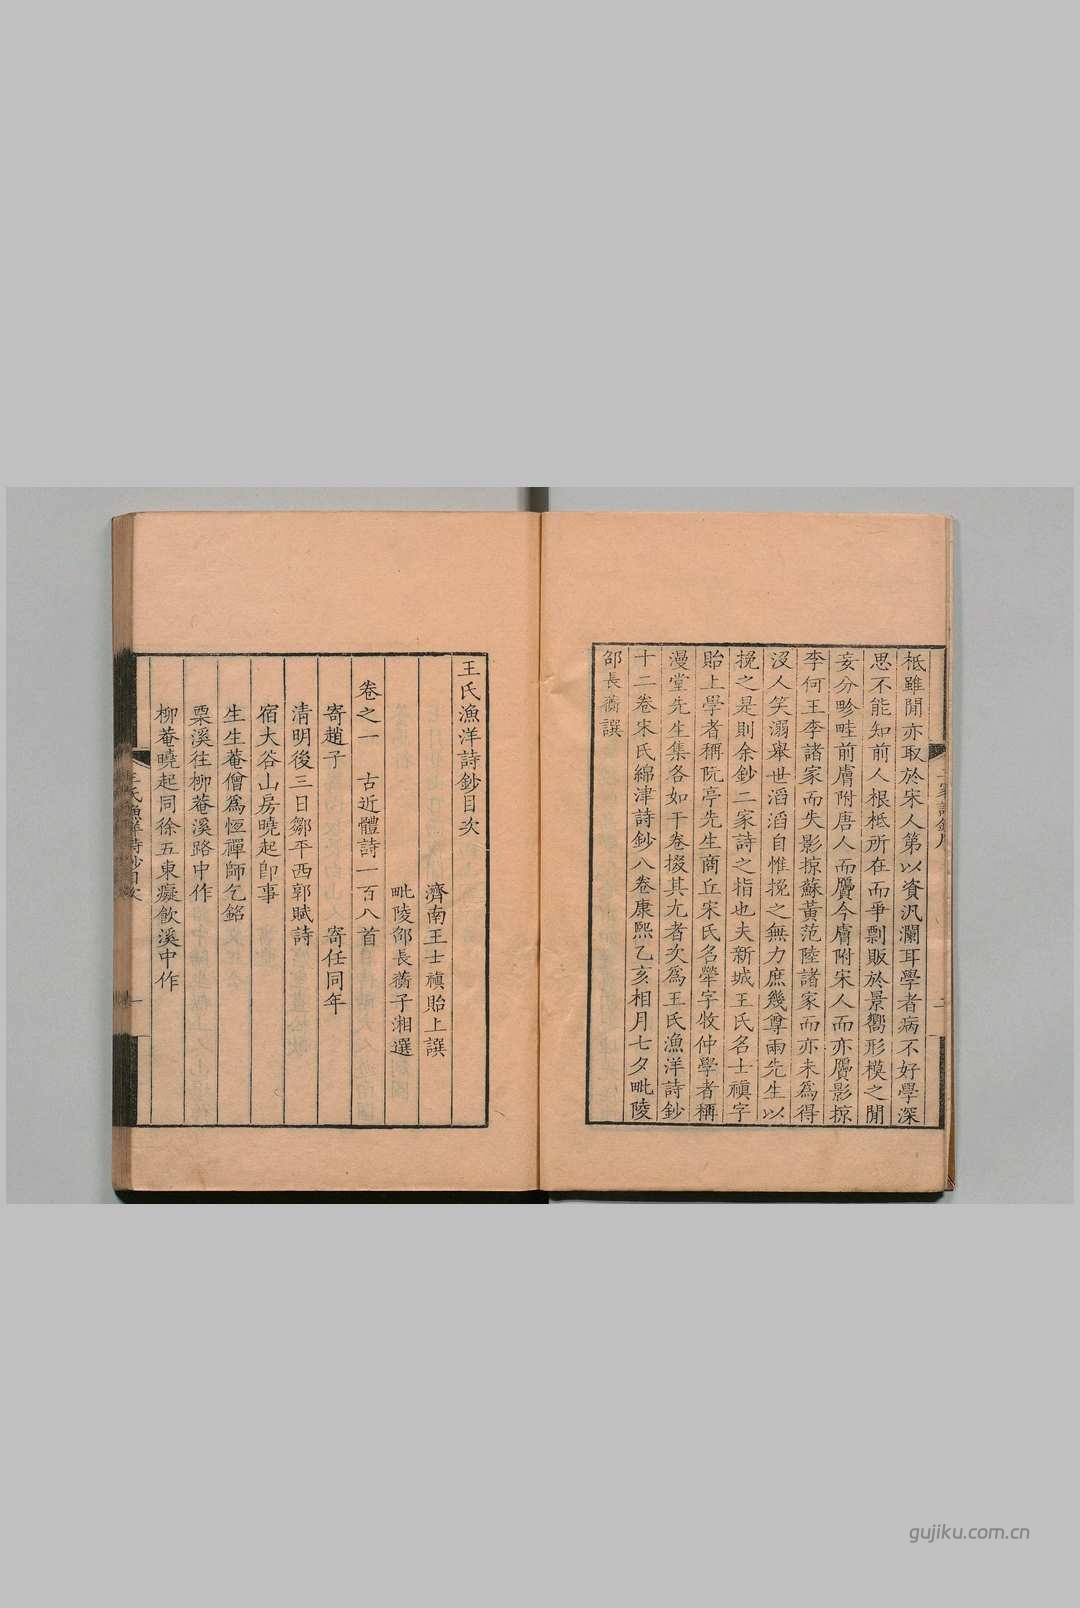 柢雖閒亦取於宋人第以資汎瀾耳學者病不好學深
思不能知前人根柢所在而爭剽販於景嚮形模之閒
妄分畛畦前膚附唐人而贗今膚附宋人而亦贗影掠
李何王李諸家而失影掠蘇黃范陸諸家而亦未為得
沒人笑溺舉世滔滔自惟挽之無力庶幾尊兩先生以
挽之是則余鈔二家詩之指也夫新城王氏名士禛字
貽上學者稱阮亭先生商丘宋氏名犖字牧仲學者稱
漫堂先生集各如干卷掇其尤者次為王氏漁洋詩鈔
十二卷宋氏綿津詩鈔八卷康熙乙亥相月七夕毗陵
邵長蘅譔
王氏漁洋詩鈔目次
濟南王士禛貽上譔
毗陵邵長蘅子湘選
卷之一 古近體詩一百八首
寄趙子 寄任同年
清明後三日鄒平西郭賦詩
宿大谷山房曉起卽事
生生菴僧為恆禪師乞銘
栗溪往柳菴溪路中作
柳菴曉起同徐五東癡飲溪中作
王氏漁洋詩鈔目次
一
gujiku.com.cn